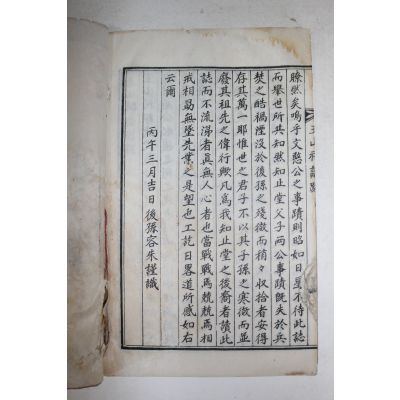 瞭然矣嗚乎文愍公之事蹟則昭如日星不待此誌
而擧世所共知然知止堂父子兩公事蹟旣失於兵
燹之酷禍湮沒於後孫之殘微而稍々收拾者安得
存其萬一耶惟世之君子不以其子孫之寒微而並
廢其祖先之偉行歟凡爲我知止堂之後裔者讀此
誌而不流涕者眞無人心者也當戰戰焉兢兢焉相
戒相勗無墜先業之是望也工訖日畧道所感如右
云爾
丙午三月吉日後孫容朱謹識